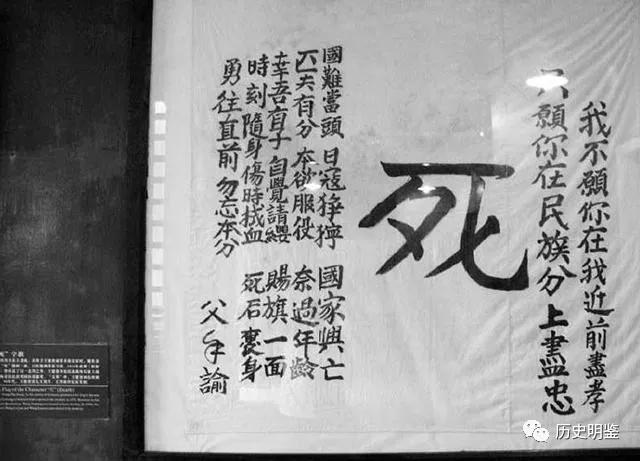 我不願你在我近前盡孝
只願你在民族分上盡忠
死
國難當頭 日寇猙獰 國家興亡
匹夫有分 本欲服役 奈過年齡
幸吾有子 自覺請纓 賜旗一面
時刻隨身 傷時拭血 死后裹身
勇往直前 勿忘本分
父手諭
死”字旗
Flag of the Character "死" (Death)
历史明鉴